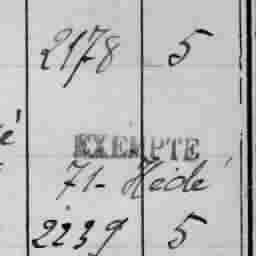 2178 5
é
EXEMPTE
71- Hédé
2239 5